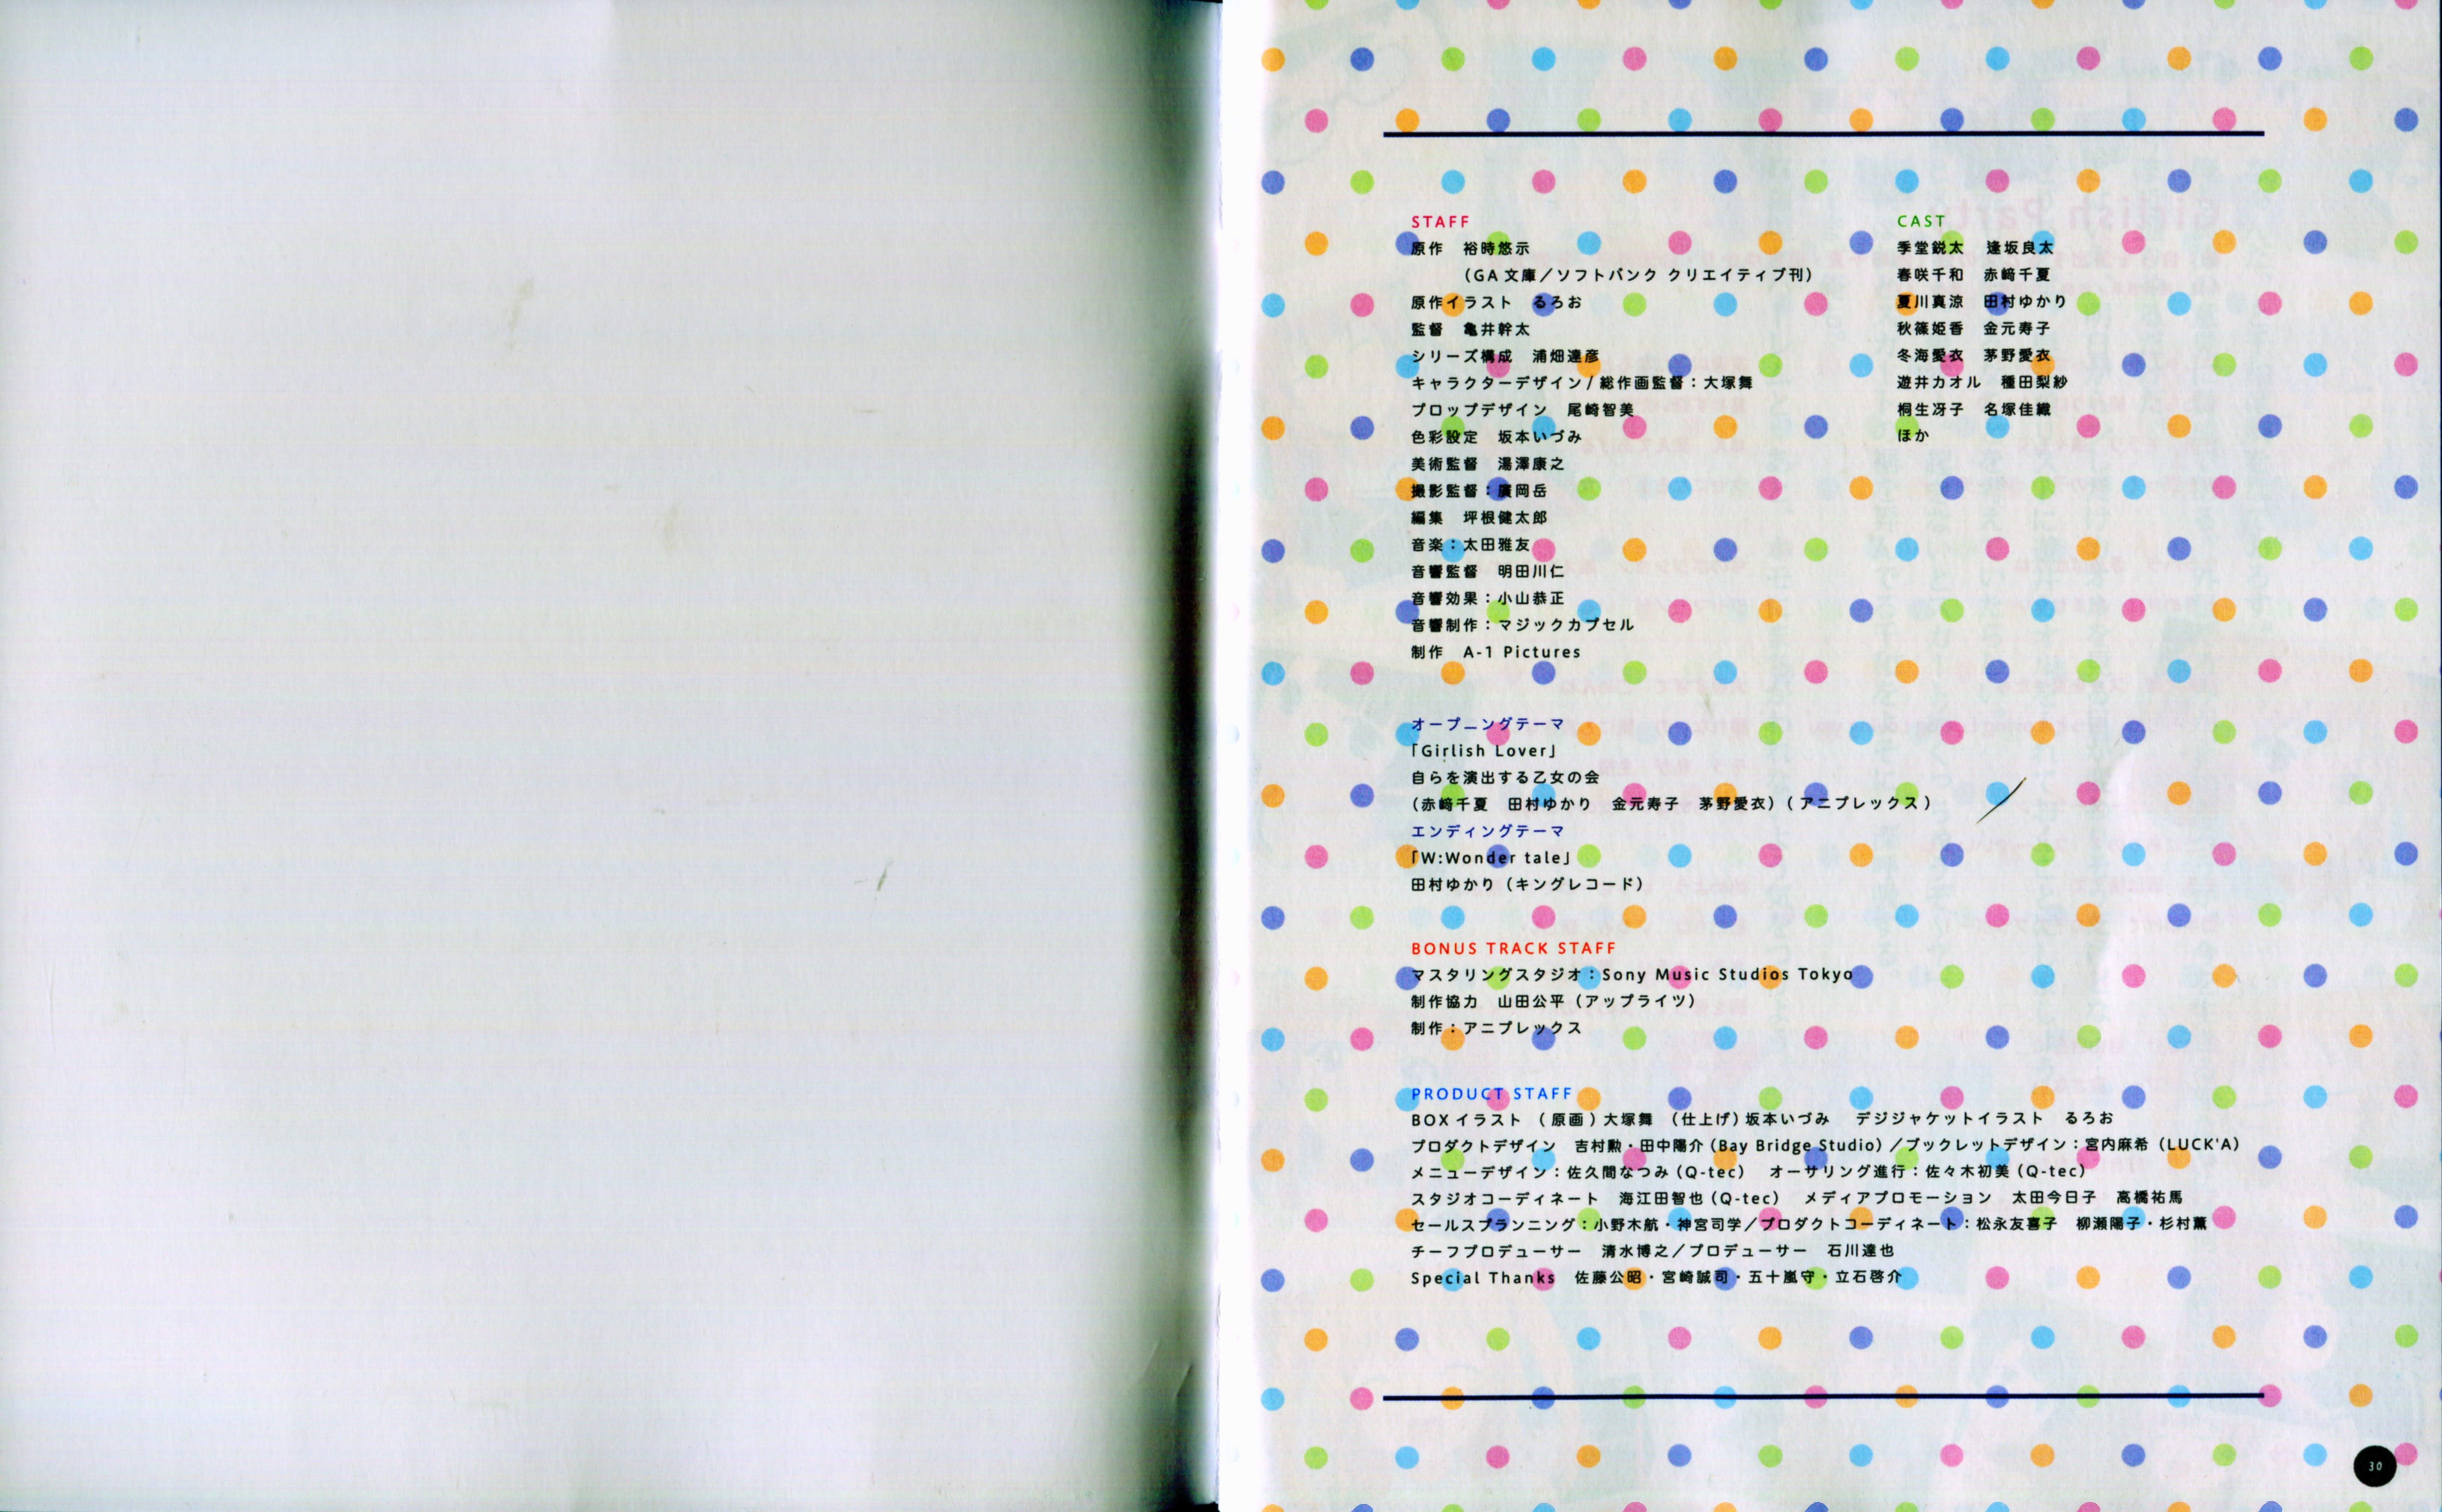 STAFF
原作　裕時悠示
（GA 文庫／ソフトバンク クリエイティブ刊）
原作イラスト　るろお
監督　亀井幹太
シリーズ構成　浦畑達彦
キャラクターデザイン / 総作画監督：大塚舞
プロップデザイン　尾崎智美
色彩設定　坂本いづみ
美術監督　湯澤康之
撮影監督：廣岡岳
編集　坪根健太郎
音楽：太田雅友
音響監督　明田川仁
音響効果：小山恭正
音響制作：マジックカプセル
制作　A-1 Pictures
CAST
季堂鋭太　逢坂良太
春咲千和　赤﨑千夏
夏川真涼　田村ゆかり
秋篠姫香　金元寿子
冬海愛衣　茅野愛衣
遊井カオル　種田梨紗
桐生冴子　名塚佳織
ほか
オープニングテーマ
「Girlish Lover」
自らを演出する乙女の会
（赤﨑千夏　田村ゆかり　金元寿子　茅野愛衣）（アニプレックス）
エンディングテーマ
「W:Wonder tale」
田村ゆかり（キングレコード）
BONUS TRACK STAFF
マスタリングスタジオ：Sony Music Studios Tokyo
制作協力　山田公平（アップライツ）
制作：アニプレックス
PRODUCT STAFF
BOX イラスト　（原画）大塚舞　（仕上げ）坂本いづみ　デジジャケットイラスト　るろお
プロダクトデザイン　吉村勲・田中陽介（Bay Bridge Studio）／ブックレットデザイン：宮内麻希（LUCK'A）
メニューデザイン：佐久間なつみ（Q-tec）　オーサリング進行：佐々木初美（Q-tec）
スタジオコーディネート　海江田智也（Q-tec）　メディアプロモーション　太田今日子　高橋祐馬
セールスプランニング：小野木航・神宮司学／プロダクトコーディネート：松永友喜子　柳瀬陽子・杉村薫
チーフプロデューサー　清水博之／プロデューサー　石川達也
Special Thanks　佐藤公昭・宮崎誠司・五十嵐守・立石啓介
30